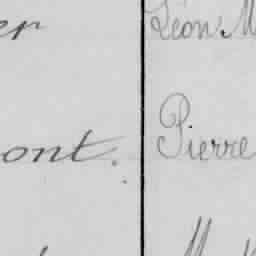 er Léon M
ont. Pierre